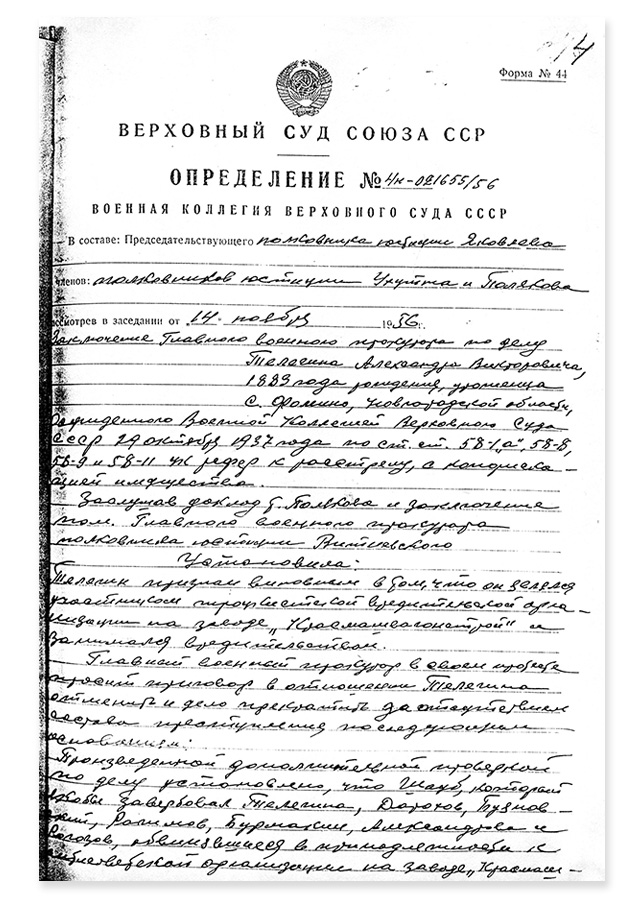 4
Форма № 44
ВЕРХОВНЫЙ СУД СОЮЗА ССР
ОПРЕДЕЛЕНИЕ № 4н-021655/56
ВОЕННАЯ КОЛЛЕГИЯ ВЕРХОВНОГО СУДА СССР
В составе: Председательствующего полковника юстиции Яковлева
членов: полковников юстиции и Полякова
рассмотрев в заседании от 14 ноября 1956 г.
Заключение Главного военного прокурора по делу
Телегина Александра Викторовича,
1889 года рождения, уроженца
с. Фомино, Новгородской области,
осужденного Военной Коллегией Верховного Суда
СССР 29 октября 1937 года по ст. ст. 58-1„а", 58-8,
58-9 и 58-11 УК РСФСР к расстрелу, с конфиска-
цией имущества.
Заслушав доклад т. Полякова и заключение
пом. Главного военного прокурора
полковника юстиции
Установила:
Телегин признан виновным в том, что он являлся
участником троцкистской вредительской орга-
низации на заводе „Красмашвагонстрой" и
занимался вредительством.
Главный военный прокурор в своем протесте
просит приговор в отношении Телегина
отменить и дело прекратить за отсутствием
состава преступления по следующим
основаниям:
Произведенной дополнительной проверкой
по делу установлено, что Шауб, который
якобы завербовал Телегина, Дорохов,
Рогимов, Бурмакин, Александров и
обвинявшиеся в принадлежности к
антисоветской организации на заводе „Красмаш-